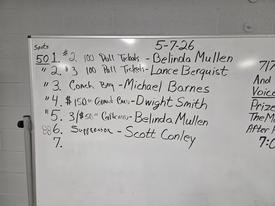 Spots 5-7-26
50 1. #2 100 Pull Tickets - Belinda Mullen
" 2. #3 100 Pull Tickets - Lance Berquist
" 3. Coach Bag - Michael Barnes
" 4. $150 - Dwight Smith
" 5. 3/$50 - Belinda Mullen
6. - Scott Conley
7.
And
Voice
Prize
After
7:0